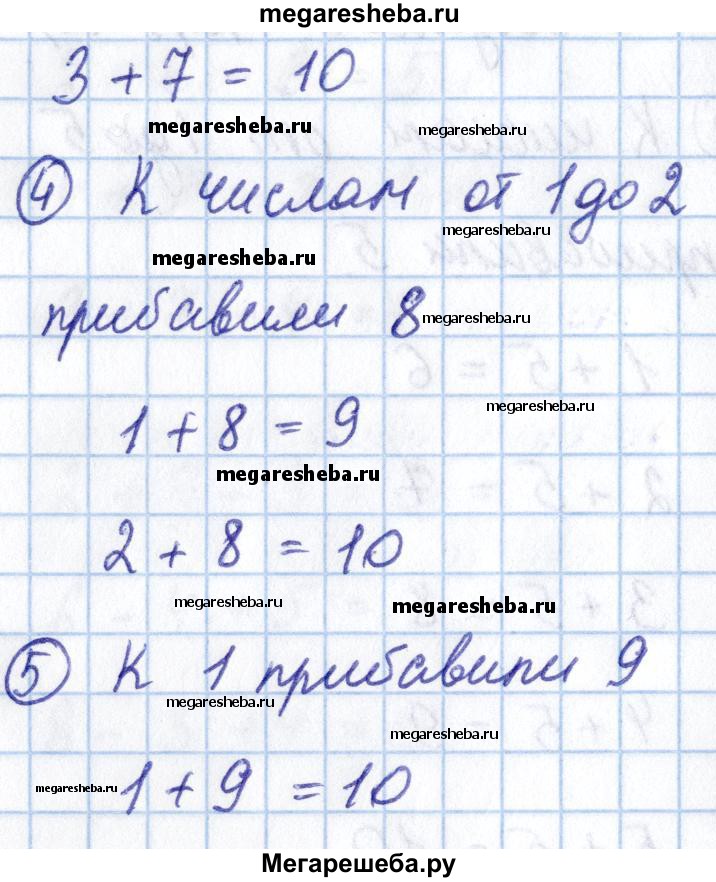 megaresheba.ru
3 + 7 = 10
megaresheba.ru megaresheba.ru
4 К числам от 1 до 2
megaresheba.ru
megaresheba.ru
прибавили 8
megaresheba.ru
megaresheba.ru
1 + 8 = 9
megaresheba.ru
2 + 8 = 10
megaresheba.ru megaresheba.ru
5 К 1 прибавили 9
megaresheba.ru
megaresheba.ru
megaresheba.ru
1 + 9 = 10
Мегарешеба.ру